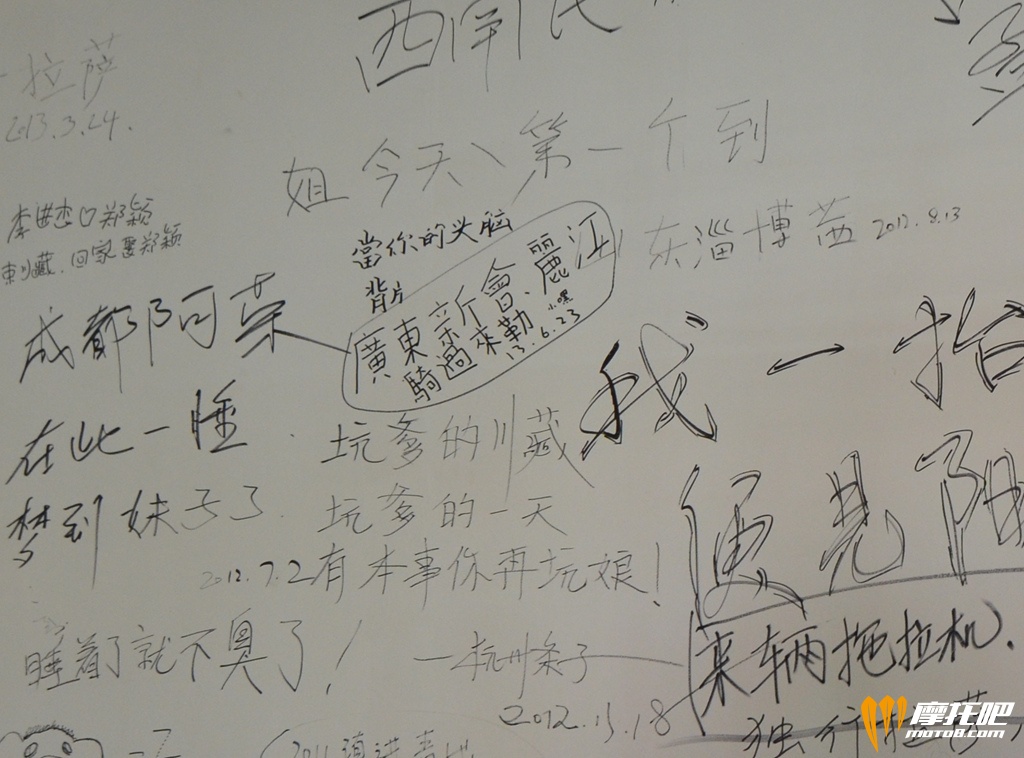 拉萨
2013.3.24.
西南民
姐今天、第一个到
李进杰口郑颖
川藏.回家娶郑颖
當你的头脑
背片
廣東新會、麗江
騎過來勒
小嘿
13.6.23
东淄博茜 2012.8.13
成都阿荣
在此一睡
梦到妹子了
我一抬
便見阳
坑爹的川藏
坑爹的一天
2012.7.2有本事你再坑娘!
睡着了就不臭了!
一杭州条子
2012.
来辆拖拉机.
独行
摩托吧
MOTO8.COM